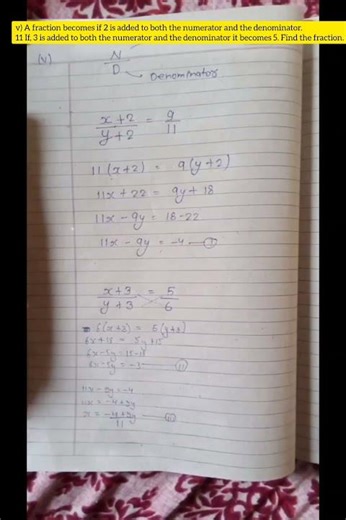 v) A fraction becomes if 2 is added to both the numerator and the denominator.
11 If, 3 is added to both the numerator and the denominator it becomes 5. Find the fraction.
(v) N/D
Denominator
x+2/y+2 = 9/11
11(x+2) = 9(y+2)
11x+22 = 9y+18
11x-9y = 18-22
11x-9y = -4 — (i)
x+3/y+3 = 5/6
6(x+3) = 5(y+3)
6x+18 = 5y+15
6x-5y = 15-18
6x-5y = -3 — (ii)
11x-9y = -4
11x = -4+9y
x = -4+9y/11